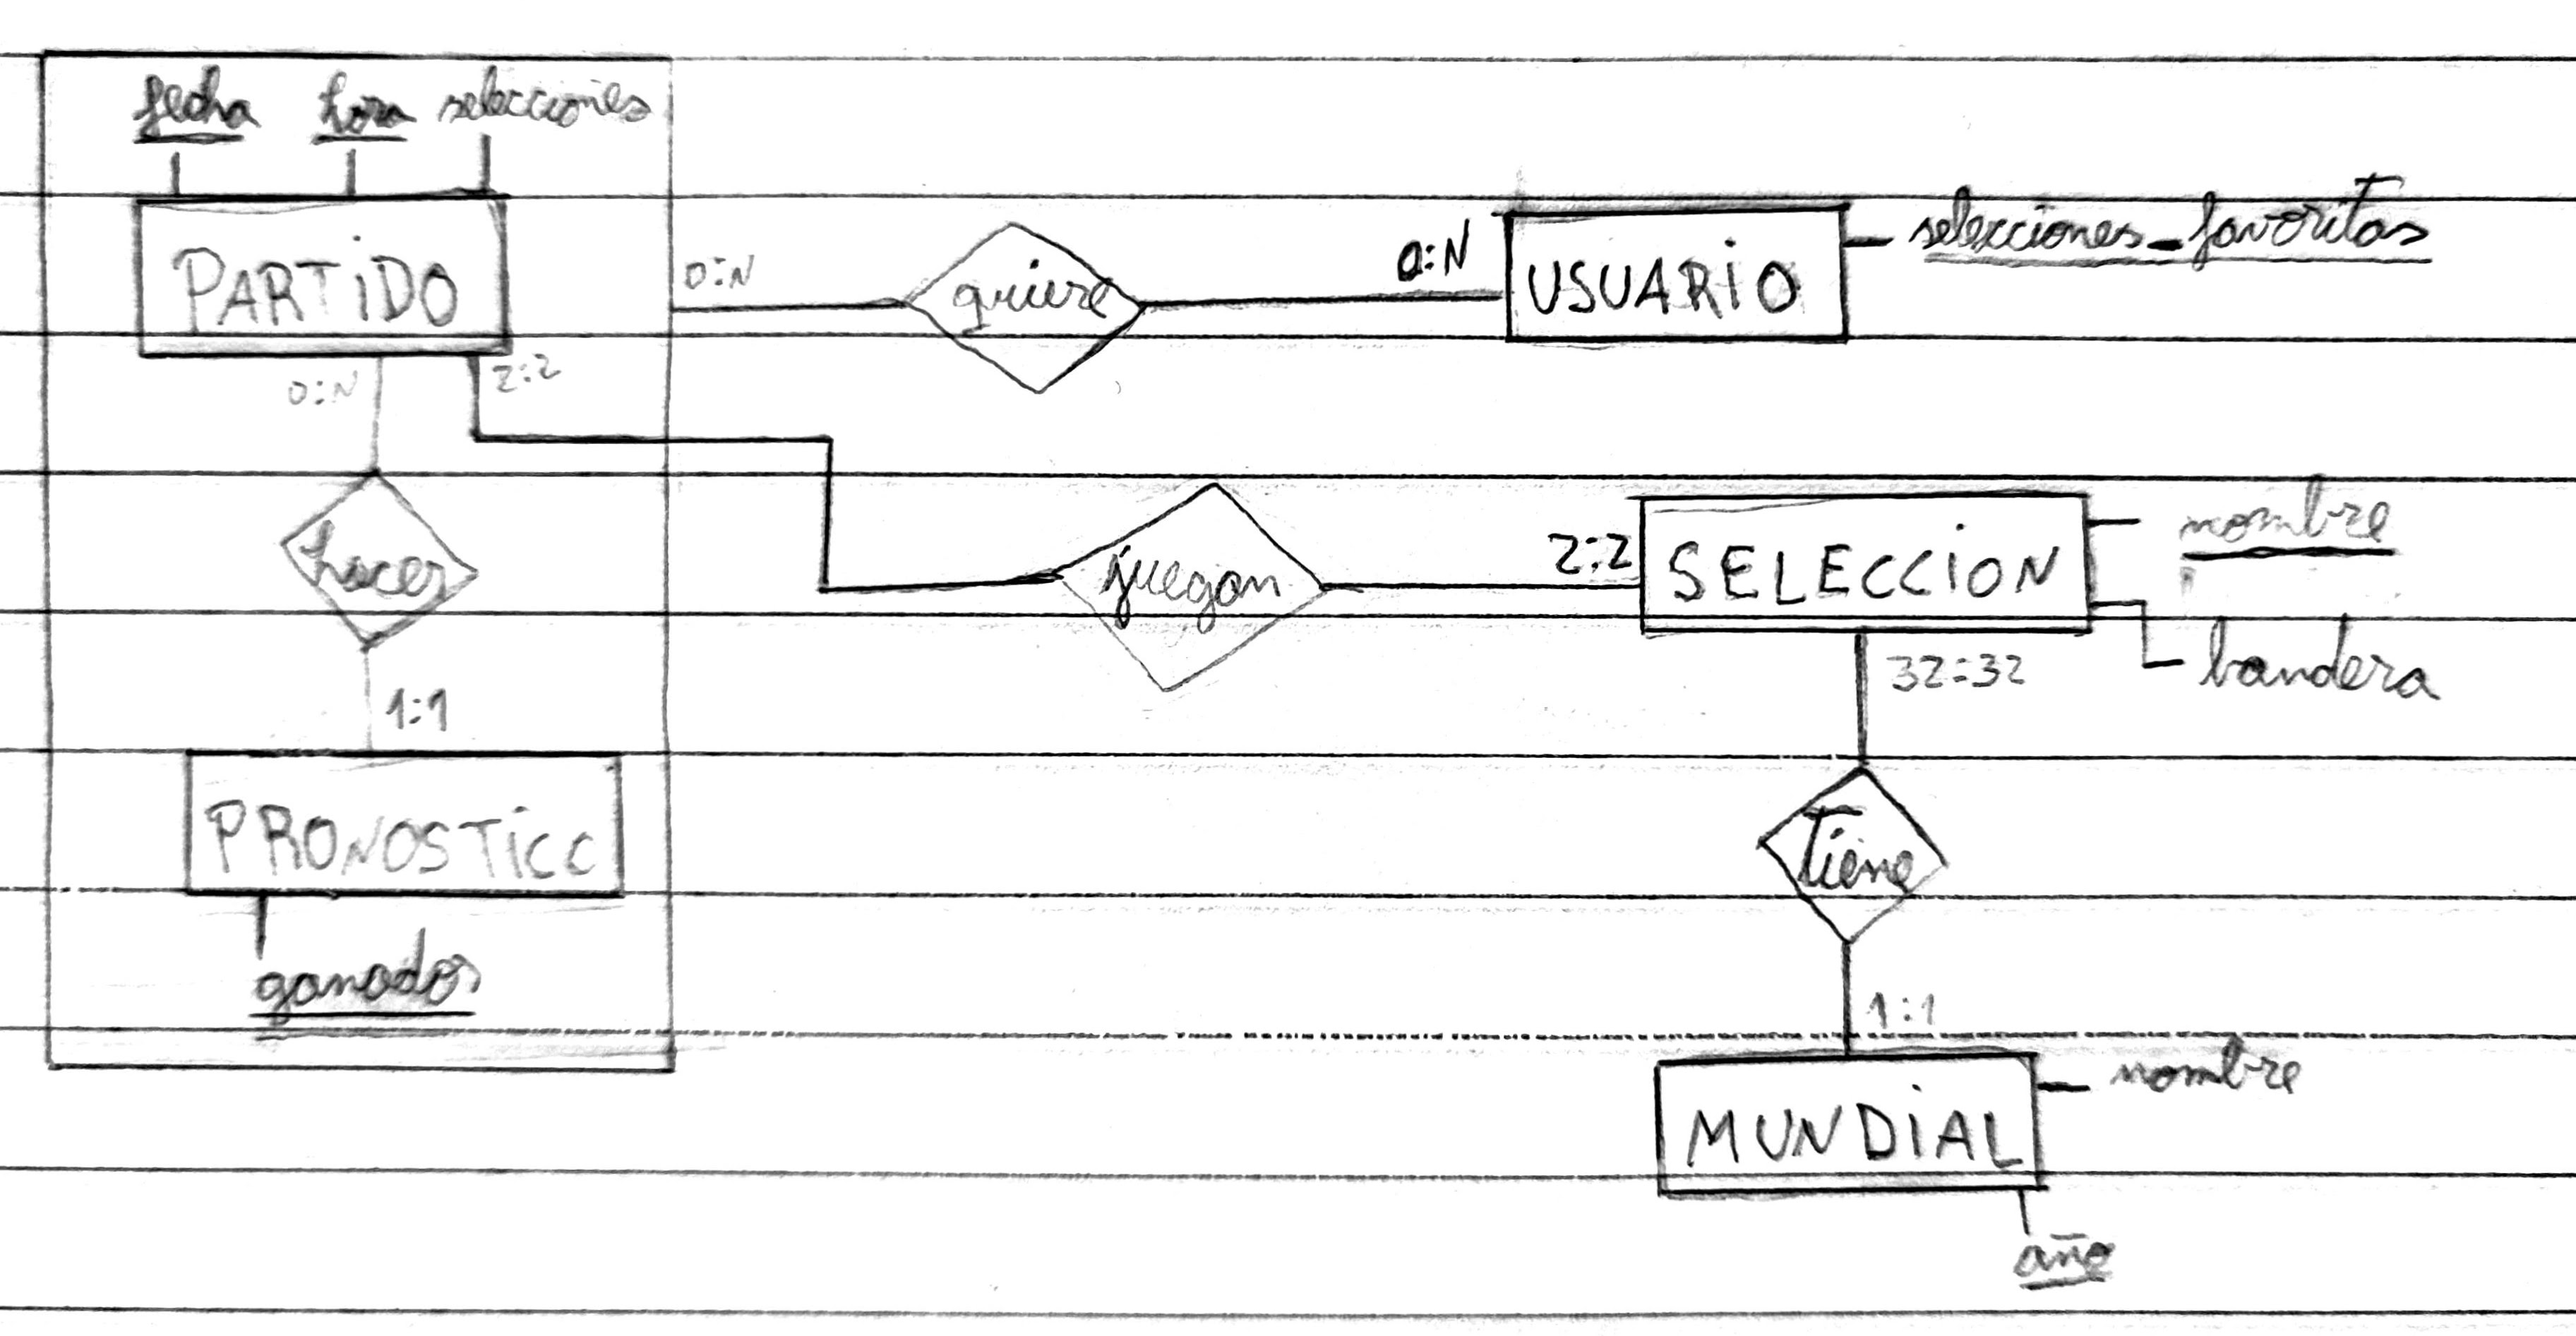 fecha hora selecciones
PARTIDO
0:N quiere 0:N USUARIO selecciones_favoritas
0:N 2:2
hacer
juegan 2:2 SELECCION nombre
bandera
32:32
1:1
PRONOSTICO
tiene
ganador
1:1
MUNDIAL nombre
año